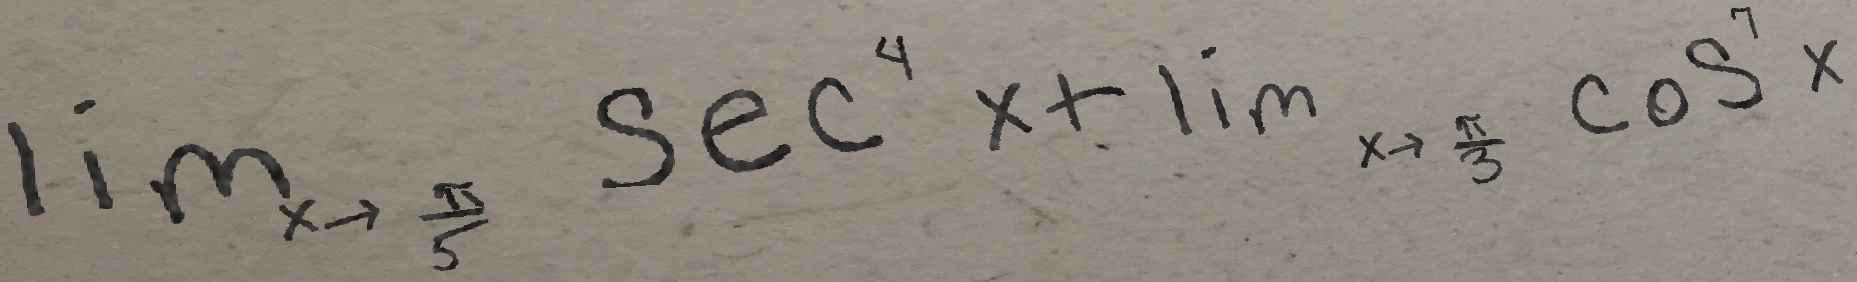 lim_{x→\frac{π}{5}} sec^4 x + lim_{x→\frac{π}{3}} cos^7 x